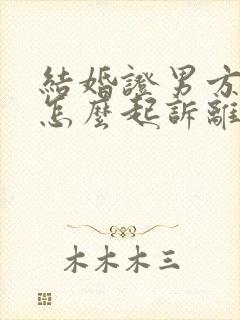 結婚證男方
怎麼起訴離
木木木三